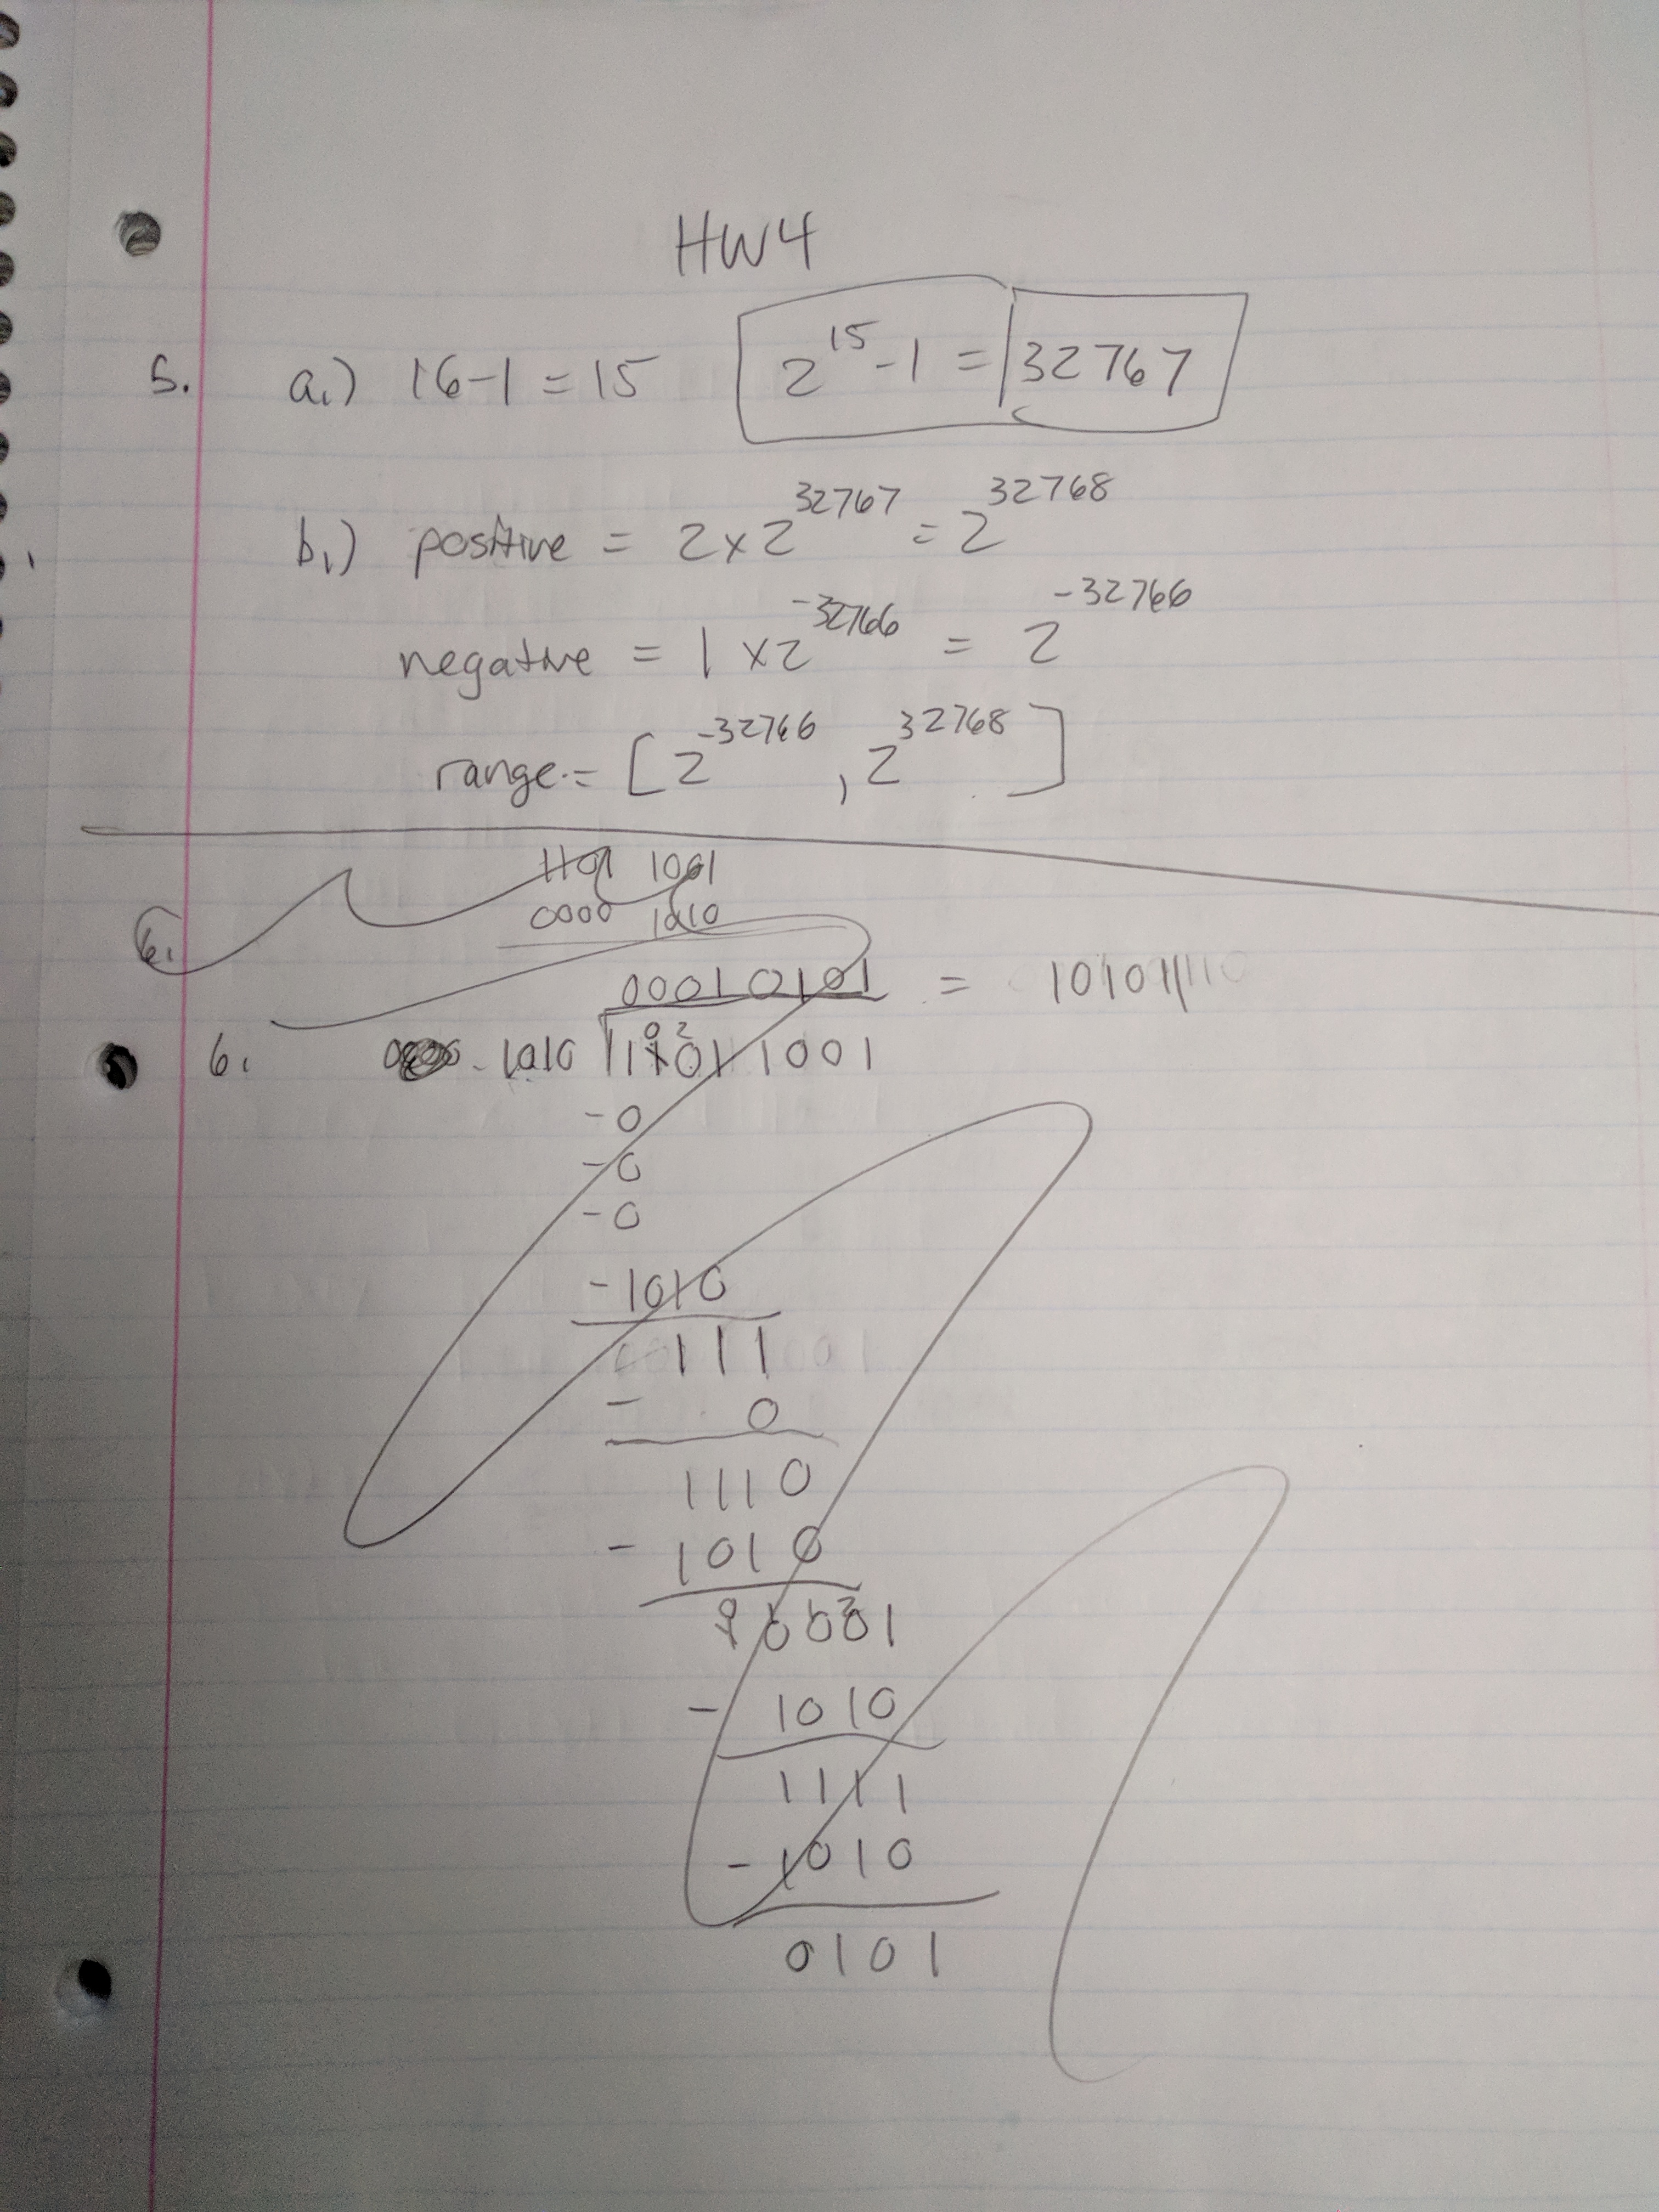 HW4
5. a.) 16-1 = 15 2^15 - 1 = 32767
b.) positive = 2 x 2^32767 = 2^32768
negative = 1 x 2^-32766 = 2^-32766
range = [2^-32766, 2^32768]
6. 1101 1001
0000 1010
00010101 = 10101
6. 1010 11011001
-0
-0
-0
-1010
111
- 0
1110
- 1010
10001
- 1010
1111
- 1010
0101